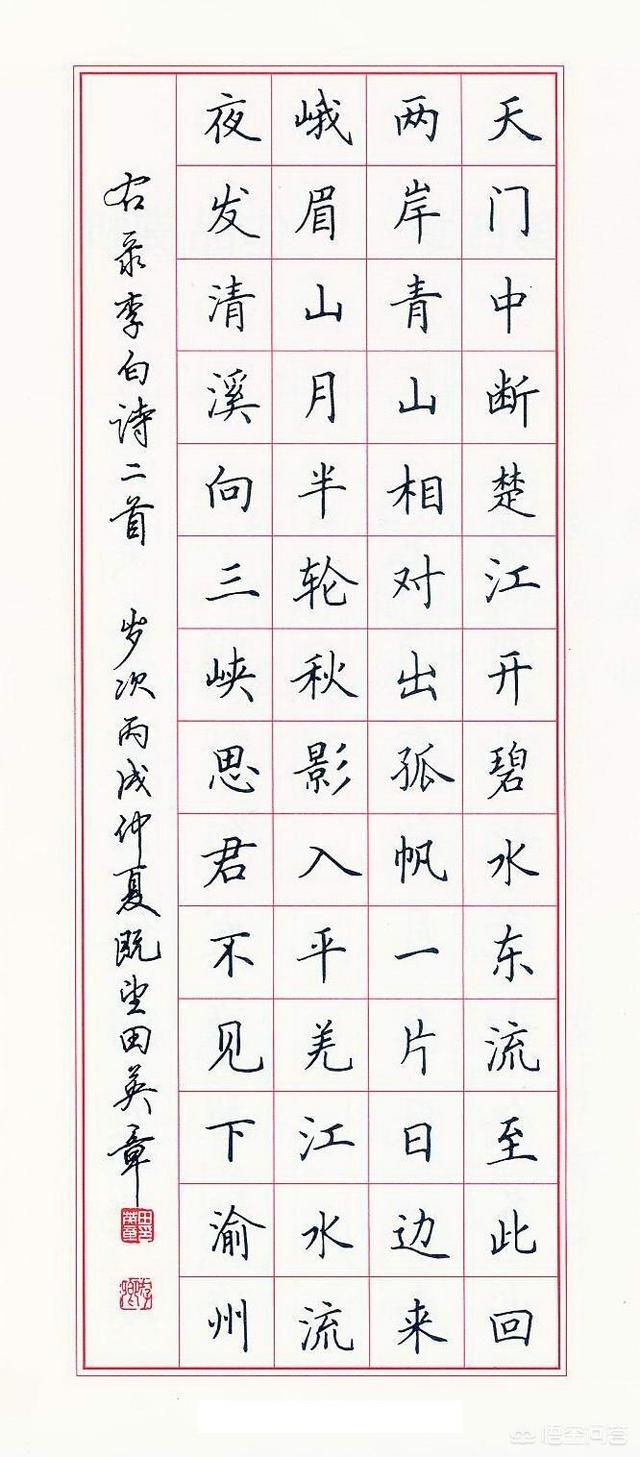 天门中断楚江开碧水东流至此回
两岸青山相对出孤帆一片日边来
峨眉山月半轮秋影入平羌江水流
夜发清溪向三峡思君不见下渝州
右录李白诗二首 岁次丙戌仲夏既望田英章
田英章印
悟空问答